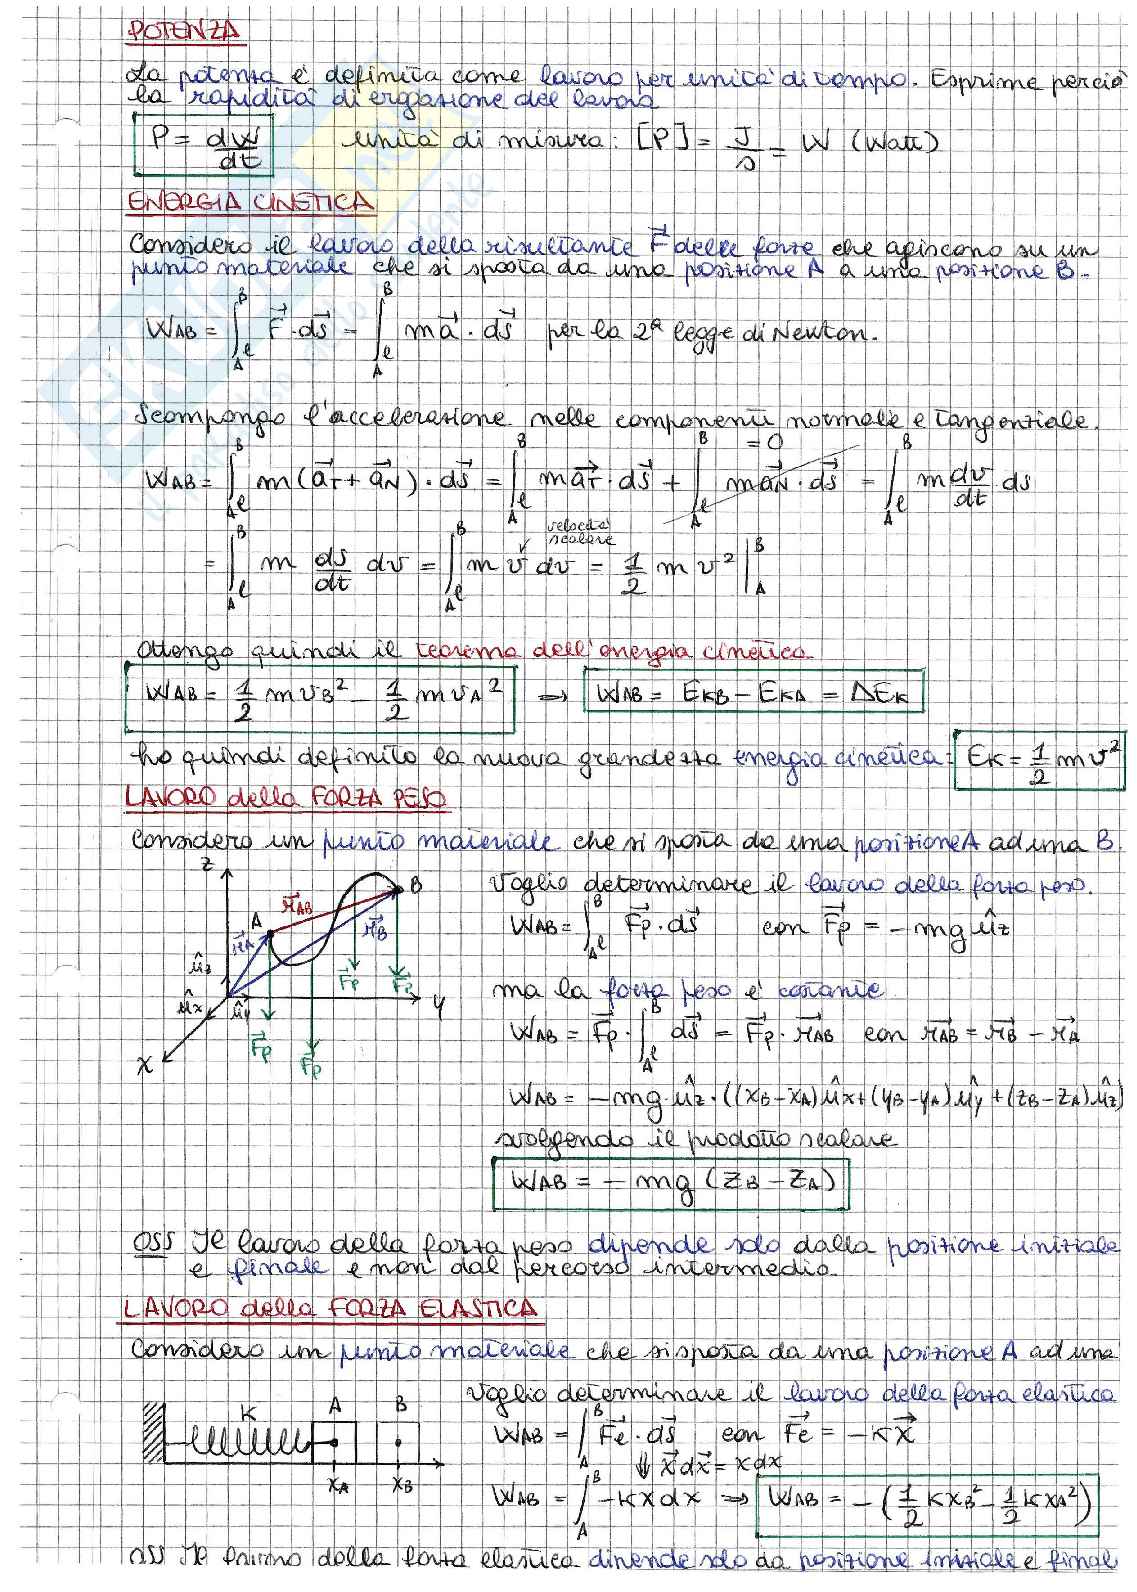 POTENZA
La potenza è definita come lavoro per unità di tempo. Esprime perciò
la rapidità di erogazione del lavoro
P = dW/dt unità di misura: [P] = J/s = W (Watt)
ENERGIA CINETICA
Considero il lavoro della risultante F⃗ delle forze che agiscono su un
punto materiale che si sposta da una posizione A a una posizione B.
W_AB = ∫_A^B F⃗·ds⃗ = ∫_A^B m a⃗·ds⃗ per la 2ª legge di Newton.
Scompongo l'accelerazione nelle componenti normale e tangenziale.
W_AB = ∫_A^B m(a⃗_T + a⃗_N)·ds⃗ = ∫_A^B m a⃗_T·ds⃗ + ∫_A^B m a⃗_N·ds⃗ = ∫_A^B m dv/dt ds
= 0
velocità scalare
= ∫_A^B m ds/dt dv = ∫_A^B m v dv = 1/2 m v² |_A^B
Ottengo quindi il teorema dell'energia cinetica
W_AB = 1/2 m v_B² - 1/2 m v_A² → W_AB = E_KB - E_KA = ΔE_K
ho quindi definito la nuova grandezza energia cinetica: E_K = 1/2 m v²
LAVORO della FORZA PESO
Considero un punto materiale che si sposta da una posizione A ad una B.
z A B r⃗_AB r⃗_A r⃗_B û_z û_x û_y y x F⃗p F⃗p F⃗p F⃗p
Voglio determinare il lavoro della forza peso.
W_AB = ∫_A^B F⃗p·ds⃗ con F⃗p = -mg û_z
ma la forza peso è costante
W_AB = F⃗p·∫_A^B ds⃗ = F⃗p·r⃗_AB con r⃗_AB = r⃗_B - r⃗_A
W_AB = -mg·û_z·((x_B - x_A)û_x + (y_B - y_A)û_y + (z_B - z_A)û_z)
svolgendo il prodotto scalare
W_AB = - mg (z_B - z_A)
OSS Il lavoro della forza peso dipende solo dalla posizione iniziale
e finale e non dal percorso intermedio.
LAVORO della FORZA ELASTICA
Considero un punto materiale che si sposta da una posizione A ad una
K A B x_A x_B
Voglio determinare il lavoro della forza elastica
W_AB = ∫_A^B F⃗e·ds⃗ con F⃗e = -K x⃗
⇓ x⃗ dx⃗ = x dx
W_AB = ∫_A^B -K x dx ⇒ W_AB = -(1/2 K x_B² - 1/2 K x_A²)
OSS Il lavoro della forza elastica dipende solo da posizione iniziale e final